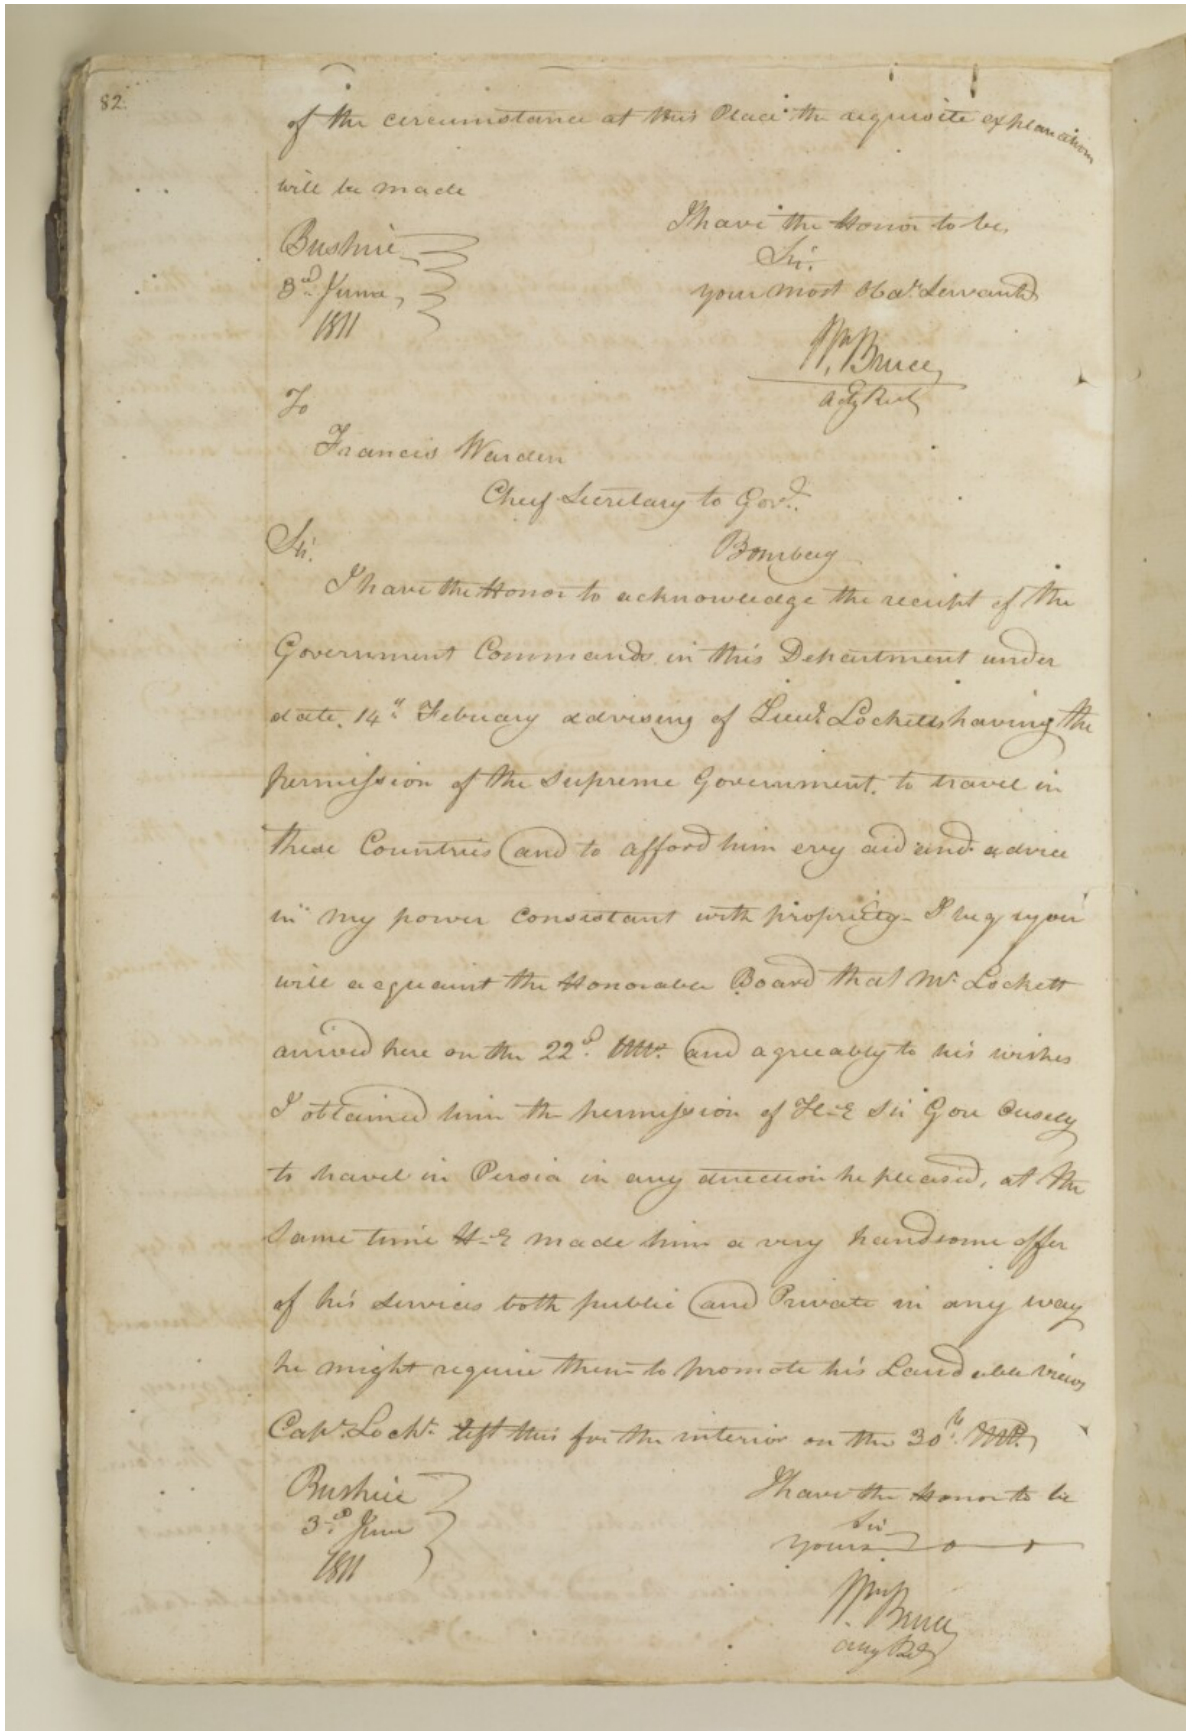 82.
of the circumstance at this Place the requisite explanations
will be made
I have the Honor to be,
Sir.
your most Obdt. Servant
Wm. Bruce
actg Rest
Bushire
3rd June,
1811
To
Francis Warden
Cheif Secretary to Govt.
Bombay
Sir.
I have the Honor to acknowledge the receipt of the
Government Commands in this Department under
date. 14th. February advising of Lieut. Locketts having the
permission of the Supreme Government. to travel in
these Countries and to afford him evry aid and advice
in my power consistant with propriety - I beg you
will acquaint the Honorable Board that Mr. Lockett
arrived here on the 22d. Ulto. and agreeably to his wishes
I obtained him the permission of H-E Sir Gore Ousely
to travel in Persia in any direction he pleased, at the
same time H-E made him a very handsome offer
of his services both public and Private in any way
he might require them to promote his Laudable views
Capt. Lockt. left this for the interior on the 30th. Ulto.
I have the Honor to be
Sir
yours
Wm Bruce
actg Rest
Bushire
3rd June
1811